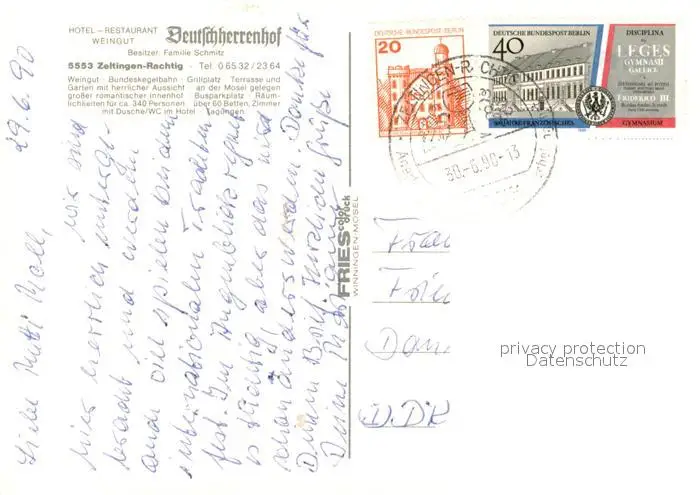 HOTEL – RESTAURANT
WEINGUT Deutschherrenhof
Besitzer: Familie Schmitz
5553 Zeltingen-Rachtig · Tel 0 65 32 / 23 64
Weingut · Bundeskegelbahn · Grillplatz Terrasse und
Garten mit herrlicher Aussicht an der Mosel gelegen
großer romantischer Innenhof Busparkplatz · Räum-
lichkeiten für ca. 340 Personen über 60 Betten, Zimmer
mit Dusche/WC im Hotel Tagungen
29.6.90
Liebe Mutti
wir sind
hier herrlich unterge-
bracht und werden
und die spielen bei dem
internationalen Trachten
fest. Im Augenblick regnet
es ständig, aber das wird
schon anders werden. Danke für
Deinen Brief. Herzliche Grüße
Deine
FRIES color druck
WINNINGEN-MOSEL
DEUTSCHE BUNDESPOST BERLIN
20
DEUTSCHE BUNDESPOST BERLIN
40
300 JAHRE FRANZÖSISCHES
DISCIPLINA
LEGES
GYMNASII
GALLICI
FRIDERICO III
GYMNASIUM
30.-6.90-13
Frau
DDR
privacy protection
Datenschutz